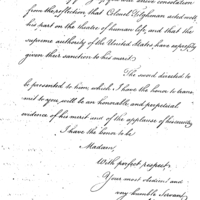 from the reflection that Colonel Tilghman acted well
his part on the theatre of human life, and that the
supreme authority of the United States have expressly
given their sanction to his merit.
The sword directed to
be presented to him, which I have the honor to trans-
mit to you, will be an honorable, and perpetual
evidence of his merit and of the applause of his country
I have the honor to be
Madam,
With perfect respect
Your most obedient and
very humble Servant